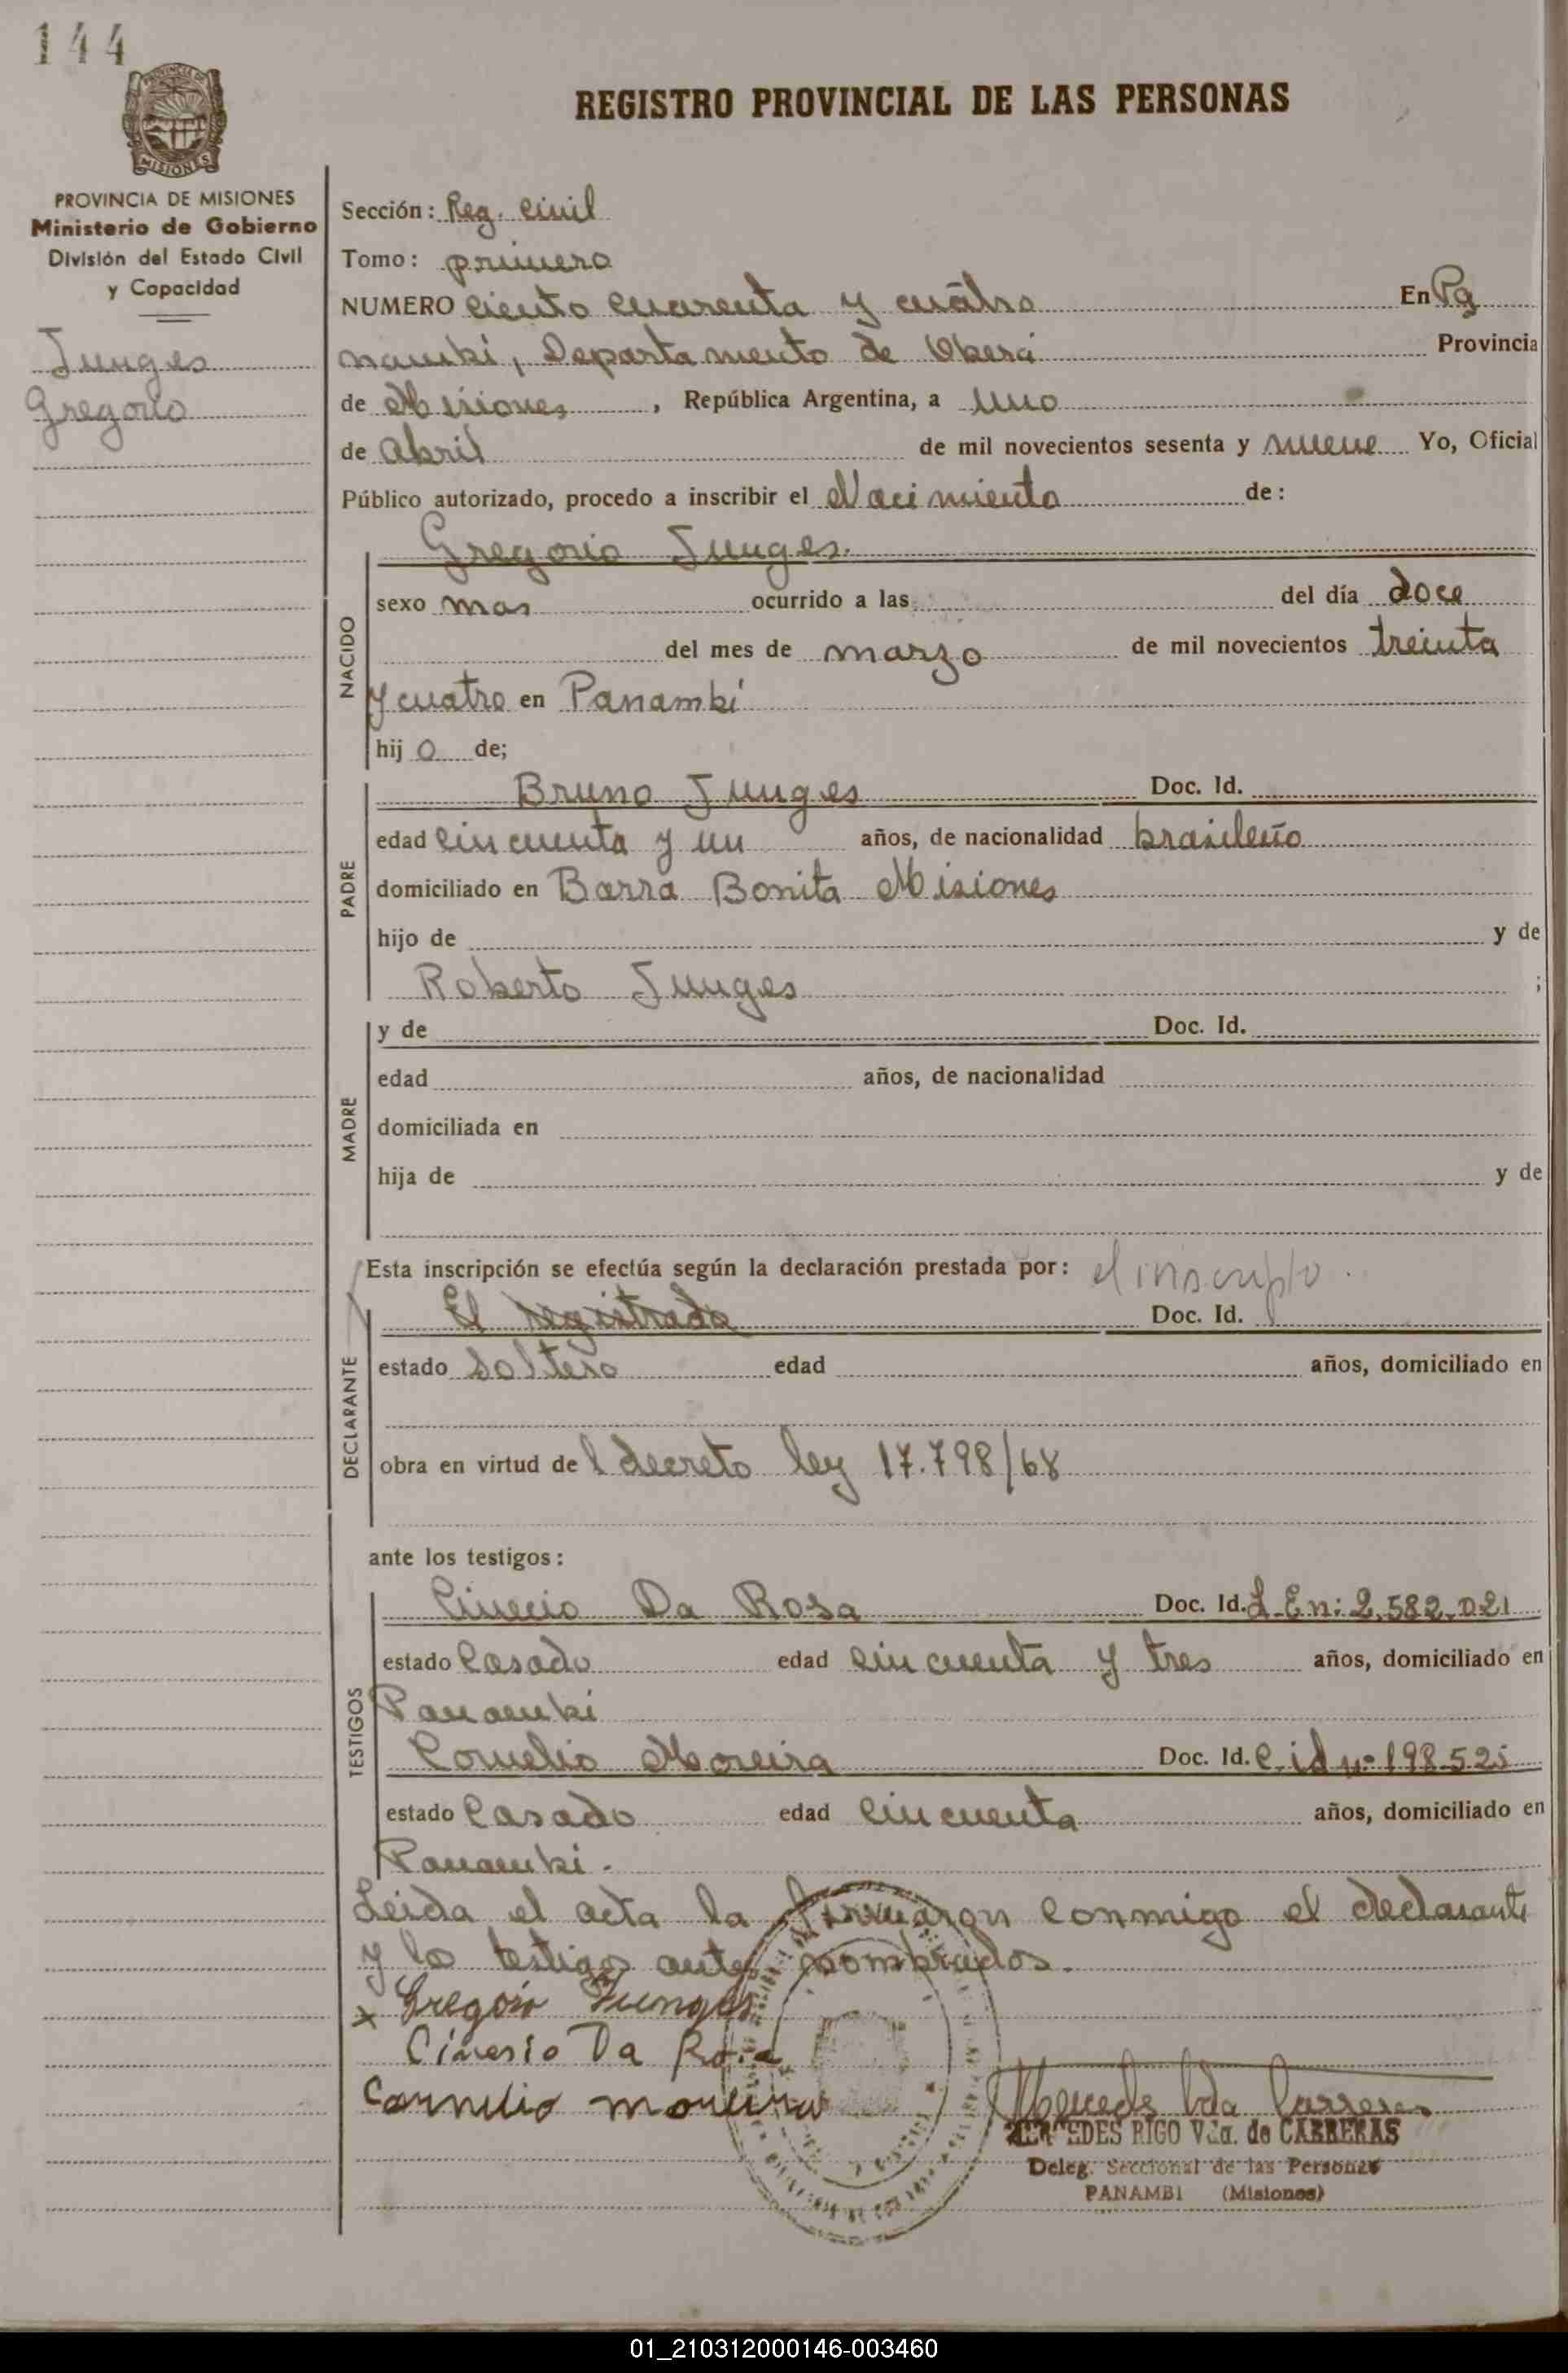 144
PROVINCIA DE MISIONES
REGISTRO PROVINCIAL DE LAS PERSONAS
PROVINCIA DE MISIONES
Ministerio de Gobierno
División del Estado Civil
y Capacidad
Junges
Gregorio
Sección: Reg. Civil
Tomo: primero
NUMERO Ciento Cuarenta y cuatro En Pa
nambí, Departamento de Oberá Provincia
de Misiones, República Argentina, a uno
de Abril de mil novecientos sesenta y nueve Yo, Oficial
Público autorizado, procedo a inscribir el Nacimiento de:
Gregorio Junges.
NACIDO
sexo mas ocurrido a las del día doce
del mes de marzo de mil novecientos treinta
y cuatro en Panambí
hij o de;
PADRE
Bruno Junges Doc. Id.
edad cincuenta y un años, de nacionalidad brasileño
domiciliado en Barra Bonita Misiones
hijo de y de
Roberto Junges ;
MADRE
y de Doc. Id.
edad años, de nacionalidad
domiciliada en
hija de y de
Esta inscripción se efectúa según la declaración prestada por: el inscripto.
DECLARANTE
El registrado Doc. Id.
estado Soltero edad años, domiciliado en
obra en virtud de l decreto ley 17.798/68
ante los testigos:
TESTIGOS
Da Rosa Doc. Id. L.En: 2,582,021
estado Casado edad cincuenta y tres años, domiciliado en
Panambí
Cornelio Moreira Doc. Id. C.id nº 198525
estado Casado edad Cincuenta años, domiciliado en
Panambí.
Leida el acta la firmaron conmigo el declarante
y los testigos antes nombrados.
x Gregorio Junges
Da Rosa
Cornelio moreira
Mercedes Vda Carreras
MERCEDES RIGO Vda. de CABRERAS
Deleg. Seccional de las Personas
PANAMBI (Misiones)
01_210312000146-003460